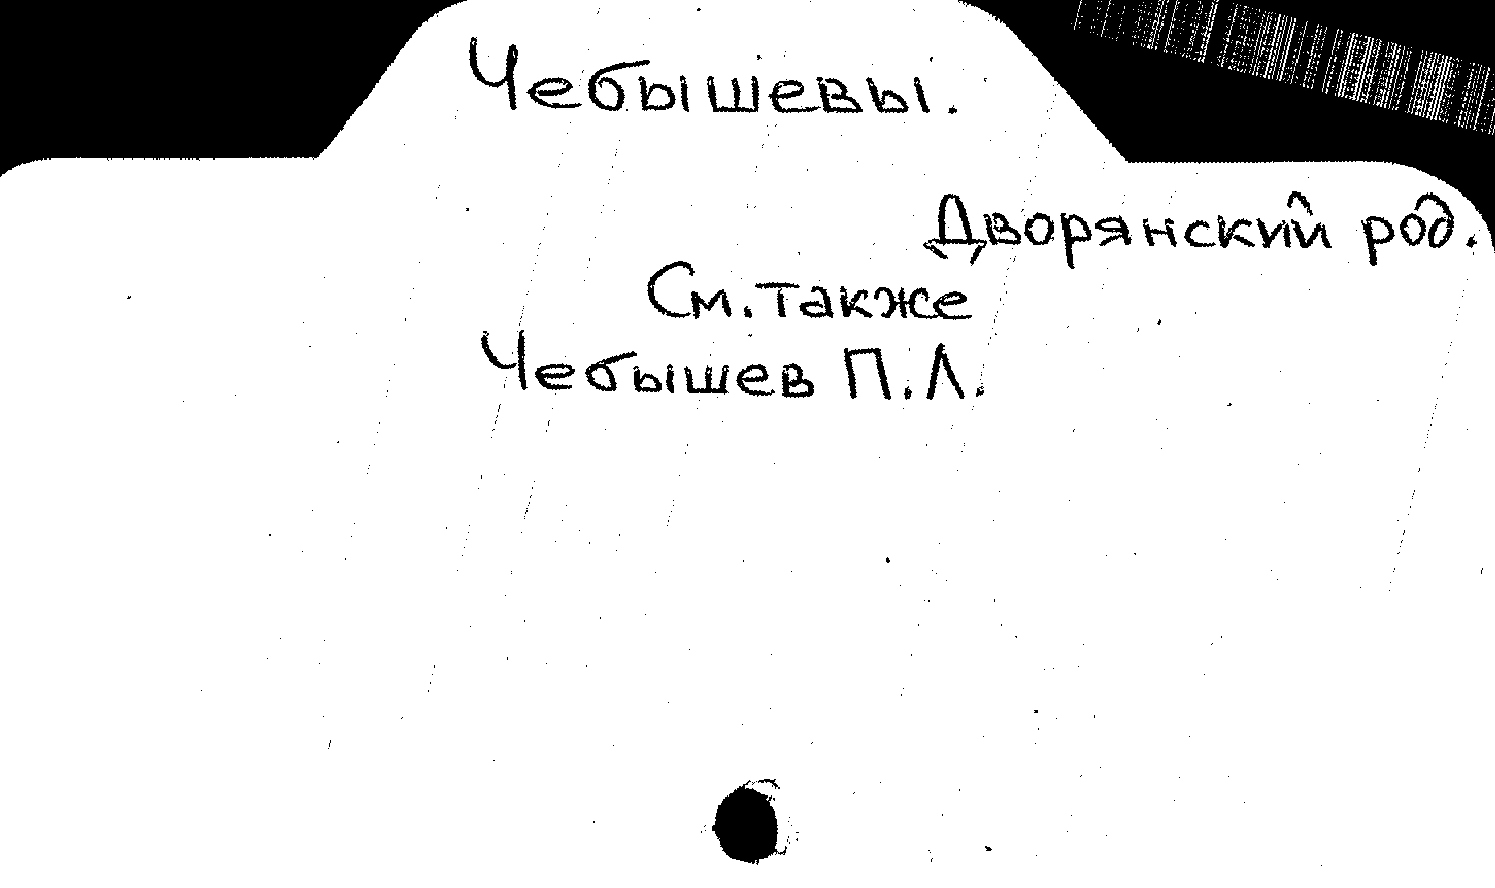 Чебышевы.
Дворянский род.
См. также
Чебышев П.Л.